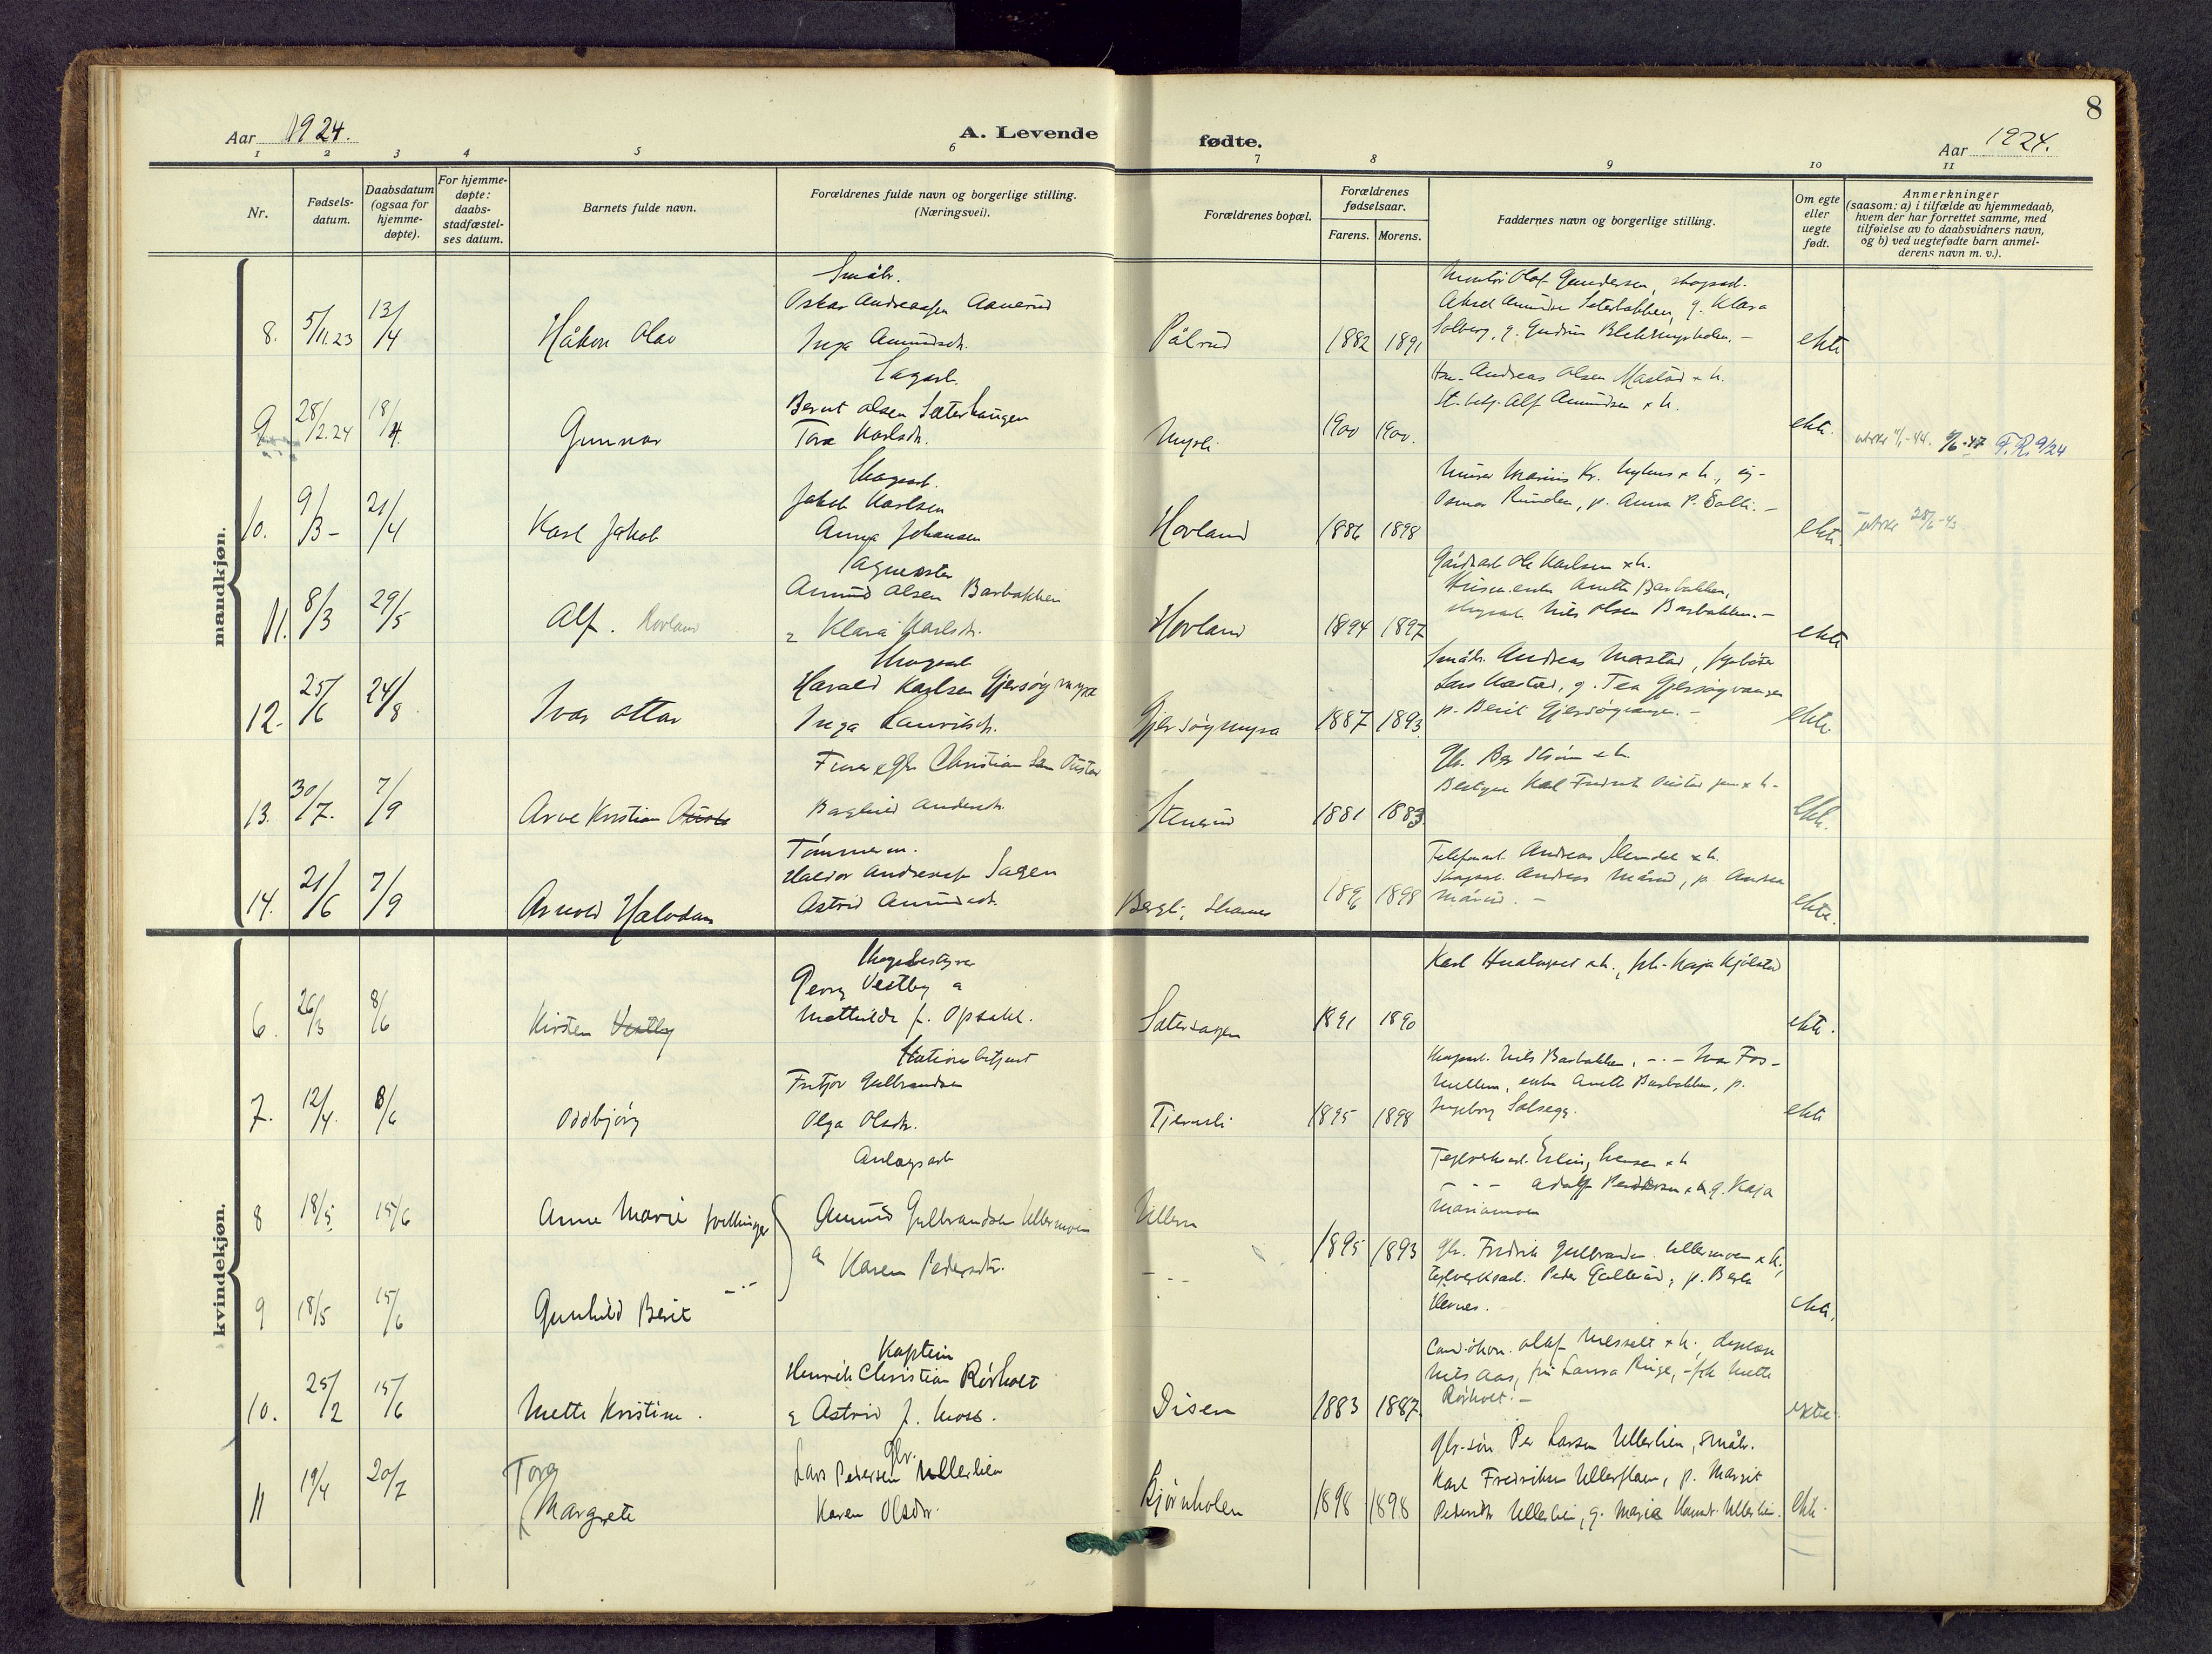 8
Aar 1924.
A. Levende
fødte.
Aar 1924.
1 2 3 4 5 6 7 8 9 10 11
Nr.
Fødsels-
datum.
Daabsdatum
(ogsaa for
hjemme-
døpte).
For hjemme-
døpte:
daabs-
stadfæstel-
ses datum.
Barnets fulde navn.
Forældrenes fulde navn og borgerlige stilling.
(Næringsvei).
Forældrenes bopæl.
Forældrenes
fødselsaar.
Farens. Morens.
Faddernes navn og borgerlige stilling.
Om egte
eller
uegte
født.
Anmerkninger
(saasom: a) i tilfælde av hjemmedaab,
hvem der har forrettet samme, med
tilføielse av to daabsvidners navn,
og b) ved uegtefødte barn anmel-
derens navn m. v.).
mandkjøn.
8. 5/11.23 13/4 Håkon Olav
Småbr.
Oskar Andreassen Aanerud
Inga Amundsdtr.
Pålrud 1882 1891
Montør Olaf Gundersen, skogsarb.
Aksel Amundsen Seterbakken, g. Klara
Solberg, g. Gudrun
ekte
9 28/2.24 18/4. Gunnar
Sagarb.
Bernt Olsen Sæterhaugen
Tora Karlsdtr.
Myrli 1900 1900.
Andreas Olsen Mastad + h.
St.betj. Alf Amundsen + h.
ekte.
F.R. 9/24
10. 9/3 - 21/4 Karl Jakob
Skogsarb.
Jakob Karlsen
Anna Johansen
Hovland 1886 1898
Murer Marius Kr. Nyhus + h.,
Osmar Runden, p. Anna P. Solli. -
ekte.
11. 8/3 29/5 Alf. Hovland
Sagmester
Amund Olsen Barbakken
& Klara Karlsdtr.
Hovland 1894 1897
Gårdsarb Ole Karlsen + h.
enke Anette Barbakken,
skogsarb. Nils Olsen Barbakken. -
ekte
12. 25/6 24/8. Ivar Ottar
Skogsarb
Harald Karlsen Gjersøgmyra
Inga Lauritsdtr.
Gjersøgmyra 1887 1893.
Småbr. Andreas Mastad,
Lars Mastad, g. Tea Gjersøgvangen
p. Berit Gjersøgvangen. -
ekte.
13. 30/7. 7/9 Arve Kristian
Christian
Ragnhild Andersdtr.
Stenerud 1881 1883
Gbr. Per Strøm + h.
Bestyrer Karl Fredrik
ekte.
14. 21/6 7/9 Arnold Halvdan
Tømmerm.
Haldor Andreassen Sagen
Astrid Amundsdtr.
Bergli, Skarnes 1896 1898
Telefonarb. Andreas Slemdal + h.
Skogsarb. Andreas Mårud, p. Andrea
Mårud. -
ekte.
kvindekjøn.
6. 26/3 8/6 Kirsten Vestby
Skogbestyrer
Georg Vestby &
Mathilde f. Opsahl.
Sætersagen 1891 1890
Karl + h., frk. Kaja Kjølstad
ekte.
7. 12/4. 8/6 Oddbjørg
Stationsbetjent
Fritjov Gulbrandsen
Olga Olsdtr.
Tjernsli 1895 1898
Skogsarb. Nils Barbakken, - . - Ivar Fos-
Mellem, enke Anette Barbakken, p.
Ingeborg Solsegg.
ekte
8 18/5. 15/6 Anne Marie tvillinger
Anlægsarb
Amund Gulbrandsen Ullernmoen
& Karen Pedersdtr.
Ullern 1895 1893
Teglverksarb. Erling Hansen + h
- . - - Adolf Pedersen + h g. Kaja
Mariamoen
9 18/5 15/6 Gunhild Berit - . -
Gbr. Fredrik Gulbrandsen Ullernmoen + h.,
teglverksarb. Peder Gullerud, p. Berta
Hernes.
ekte.
10. 25/2 15/6 Mette Kristine.
Kaptein
Henrik Christian Rørholt
& Astrid f. Moss.
Disen 1883 1887.
Olaf Messelt + h.,
Nils Aas, fru Laura Ringe, - frk Mette
Rørholt. -
ekte
11 19/4 20/7 Tora
Margrete
Gbr.
Lars Pedersen Ullerlien
Karen Olsdtr.
Bjørnholen 1898 1898
Gbr-søn Per Larsen Ullerlien, småbr.
Karl Fredriksen Ullerhaen, p. Margit
Pedersdtr Ullerlien, g. Maria Ullerlien.
ekte.